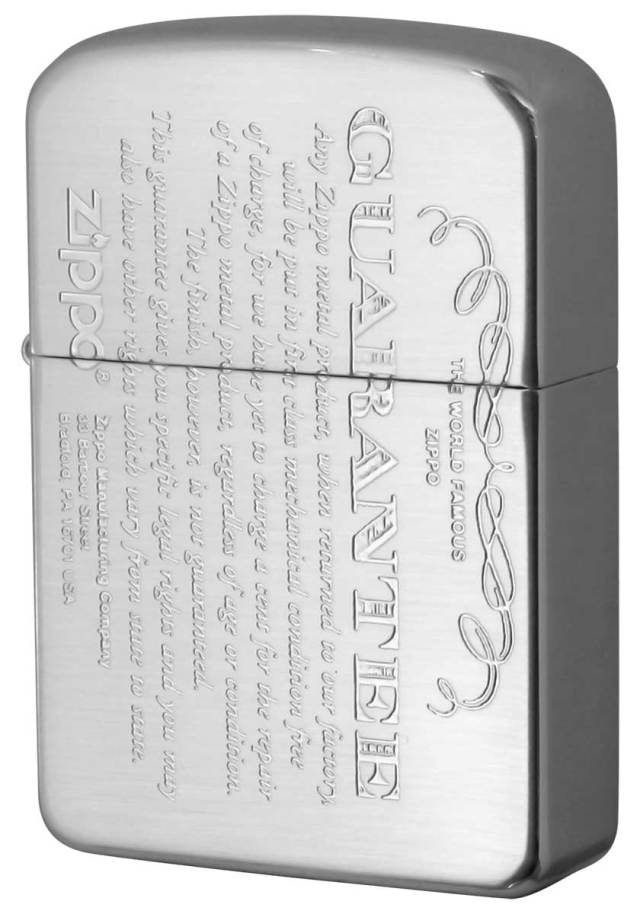 THE WORLD FAMOUS
ZIPPO
GUARANTEE
Any Zippo metal product, when returned to our factory,
will be put in first class mechanical condition free
of charge, for we have yet to charge a cent for the repair
of a Zippo metal product, regardless of age or condition.
The finish, however, is not guaranteed.
This guarantee gives you specific legal rights and you may
also have other rights which vary from state to state.
Zippo®
Zippo Manufacturing Company
33 Barbour Street
Bradford, PA 16701 USA